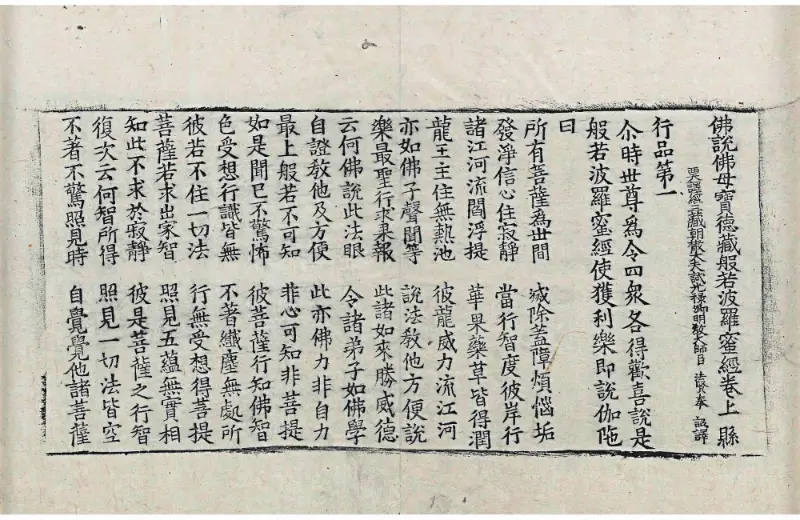 佛說佛母寶德藏般若波羅蜜經卷上 縣
西天譯經三藏朝散大夫試光祿卿明教大師臣 法賢奉 詔譯
行品第一
尒時世尊爲令四衆各得歡喜說是
般若波羅蜜經使獲利樂即說伽陁
曰
所有菩薩為世間 滅除蓋障煩惱垢
發淨信心住寂靜 當行智度彼岸行
諸江河流閻浮提 華果藥草皆得潤
龍王主住無熱池 彼龍威力流江河
亦如佛子聲聞等 說法教他方便說
樂最聖行求果報 此諸如來勝威德
云何佛說此法眼 令諸弟子如佛學
自證教他及方便 此亦佛力非自力
最上般若不可知 非心可知非菩提
如是聞已不驚怖 彼菩薩行知佛智
色受想行識皆無 不著纖塵無處所
彼若不住一切法 行無受想得菩提
菩薩若求出家智 照見五蘊無實相
知此不求於寂靜 彼是菩薩之行智
復次云何智所得 照見一切法皆空
不著不驚照見時 自覺覺他諸菩薩